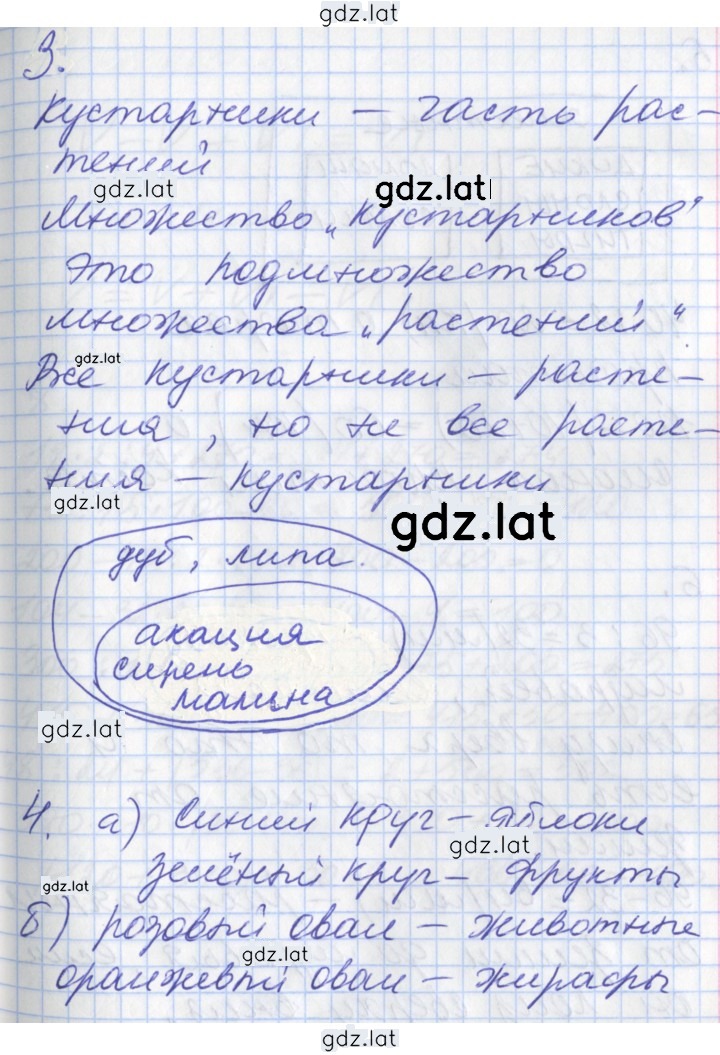 gdz.lat
3.
Кустарники – часть рас-
тений
gdz.lat
gdz.lat
Множество „кустарников"
это подмножество
множества „растений"
gdz.lat
Все кустарники – расте-
ния, но не все расте-
ния – кустарники
gdz.lat
gdz.lat
дуб, липа.
акация
сирень
малина
gdz.lat
4. а) Синий круг – яблоки
gdz.lat
зелёный круг – фрукты
gdz.lat
б) розовый овал – животные
gdz.lat
оранжевый овал – жирафы
gdz.lat